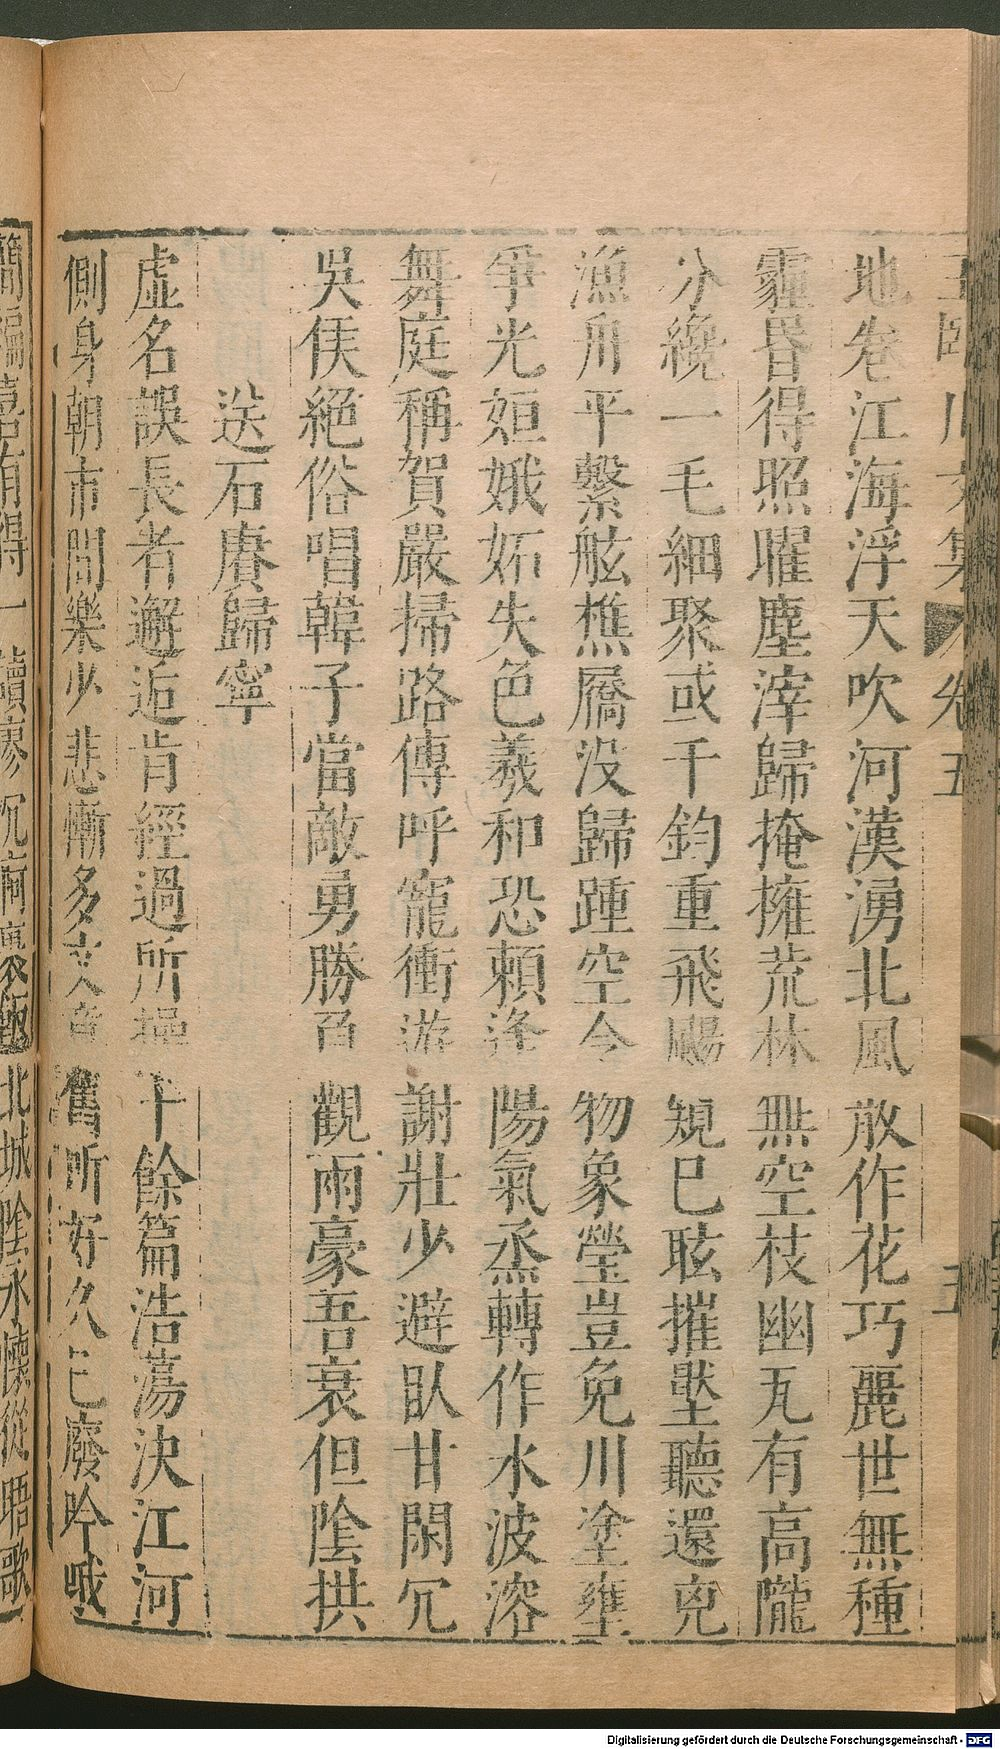 地卷江海浮天吹河漢湧北風散作花巧麗世無種
霾昬得照曜塵滓歸掩擁荒林無空枝幽瓦有高隴
分纔一毛細聚或千鈞重飛颺窺已眩摧壓聽還兇
漁舟平繫舷樵屩没歸踵空令物象瑩豈免川塗壅
爭光姮娥妬失色羲和恐賴逢陽氣烝轉作水波溶
舞庭稱賀嚴掃路傳呼寵衝游謝壯少避臥甘閑冗
吳侯絕俗唱韓子當敵勇勝負觀兩豪吾衰但陰拱
送石賡歸寧
虛名誤長者邂逅肯經過所操十餘篇浩蕩決江河
側身朝市間樂少悲慚多文章舊所好久已廢吟哦
卷五
五
北城陰永懷從晤歌
Digitalisierung gefördert durch die Deutsche Forschungsgemeinschaft - DFG